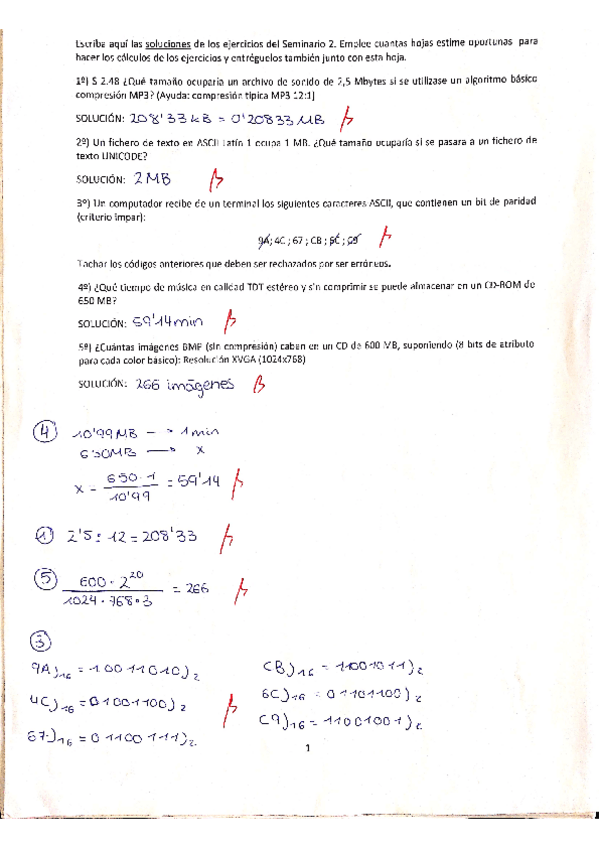 Escriba aquí las soluciones de los ejercicios del Seminario 2. Emplee cuantas hojas estime oportunas para
hacer los cálculos de los ejercicios y entréguelos también junto con esta hoja.
1º) S 2.48 ¿Qué tamaño ocuparía un archivo de sonido de 2,5 Mbytes si se utilizase un algoritmo básico
compresión MP3? (Ayuda: compresión típica MP3 12:1)
SOLUCIÓN: 208'33 kB = 0'20833 MB
2º) Un fichero de texto en ASCII Latín 1 ocupa 1 MB. ¿Qué tamaño ocuparía si se pasara a un fichero de
texto UNICODE?
SOLUCIÓN: 2 MB
3º) Un computador recibe de un terminal los siguientes caracteres ASCII, que contienen un bit de paridad
(criterio impar):
9A; 4C ; 67 ; CB ; 6C ; C9
Tachar los códigos anteriores que deben ser rechazados por ser erróneos.
4º) ¿Qué tiempo de música en calidad TDT estéreo y sin comprimir se puede almacenar en un CD-ROM de
650 MB?
SOLUCIÓN: 59'14 min
5º) ¿Cuántas imágenes BMP (sin compresión) caben en un CD de 600 MB, suponiendo (8 bits de atributo
para cada color básico): Resolución XVGA (1024x768)
SOLUCIÓN: 266 imágenes
4 10'99 MB -- > 1 min
650MB → x
x = 650·1 / 10'99 = 59'14
1 2'5 : 12 = 208'33
5 600 · 2^20 / 1024 · 768 · 3 = 266
3
9A)16 = 10011010)2
CB)16 = 11001011)2
4C)16 = 01001100)2
6C)16 = 01101100)2
67)16 = 01100111)2
C9)16 = 11001001)2
1